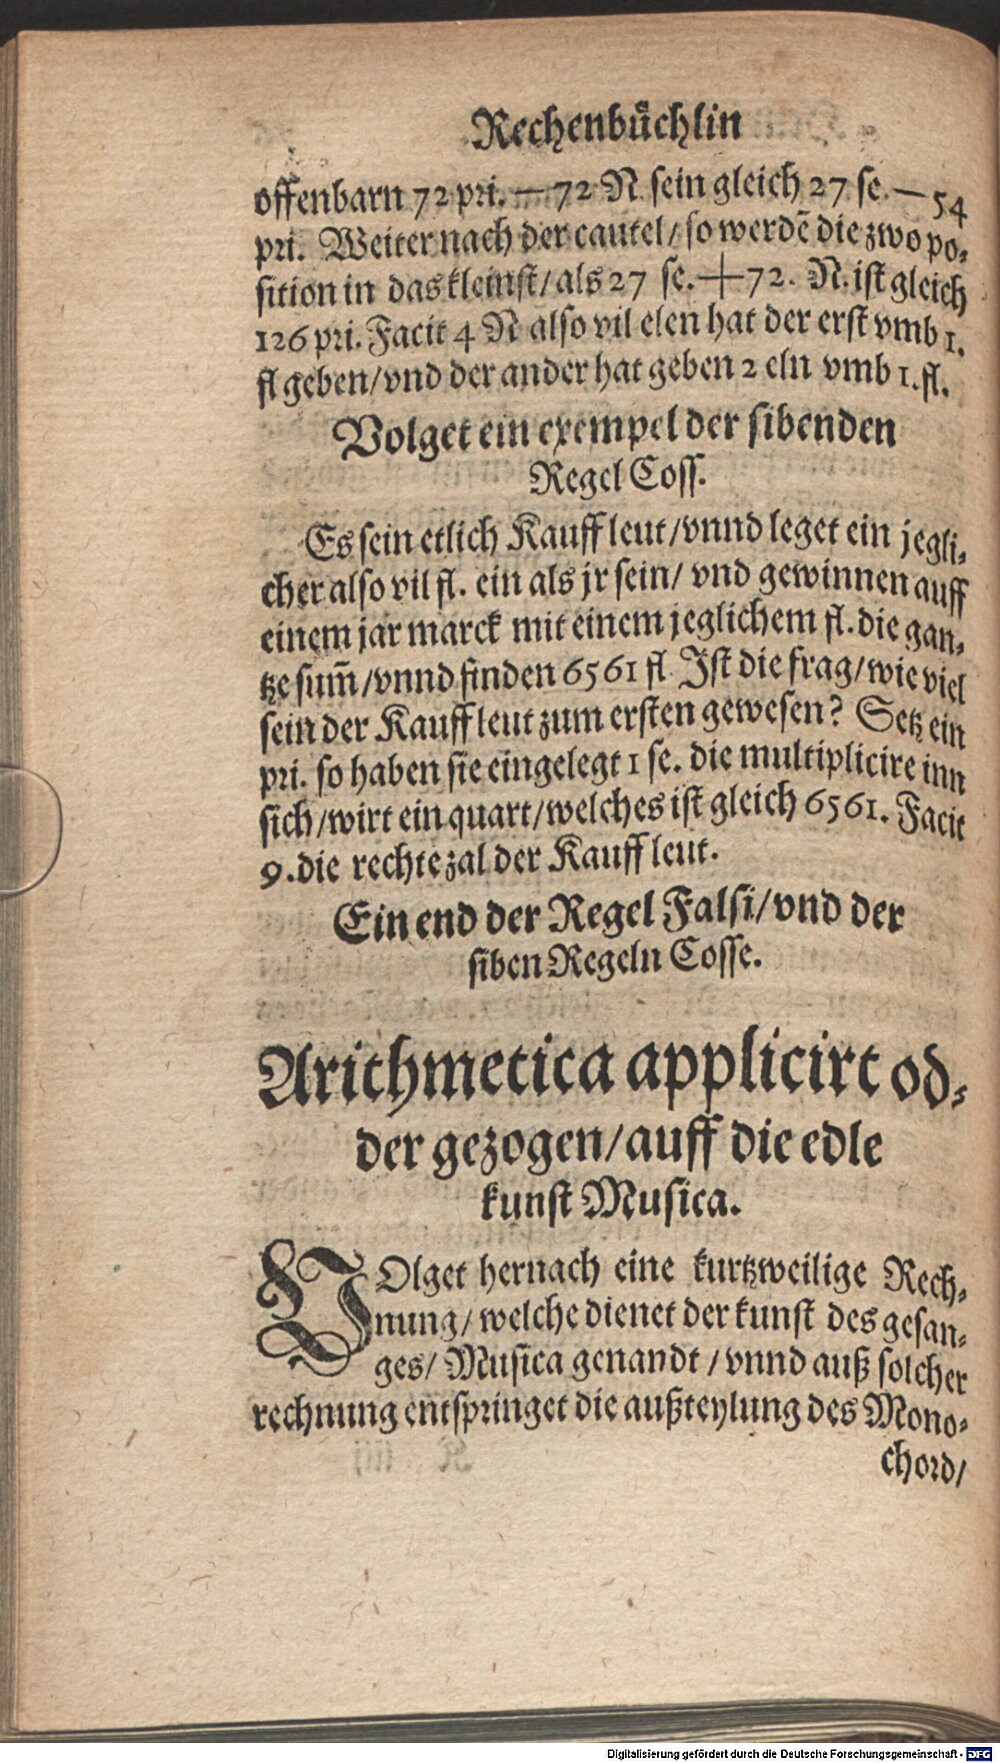 Rechenbuͤchlin
offenbarn 72 pri. — 72 N sein gleich 27 se. — 54
pri. Weiter nach der cautel/ so werdẽ die zwo po⸗
sition in das kleinst/ als 27 se. + 72. N. ist gleich
126 pri. Facit 4 N also vil elen hat der erst vmb 1.
fl geben/ vnd der ander hat geben 2 eln vmb 1. fl.
Volget ein exempel der sibenden
Regel Coss.
Es sein etlich Kauffleut/ vnnd leget ein jegli⸗
cher also vil fl. ein als jr sein/ vnd gewinnen auff
einem jar marck mit einem jeglichem fl. die gan⸗
tze sum̃/ vnnd finden 6561 fl Ist die frag/ wie viel
sein der Kauffleut zum ersten gewesen? Setz ein
pri. so haben sie eingelegt 1 se. die multiplicire inn
sich/ wirt ein quart/ welches ist gleich 6561. Facit
9. die rechte zal der Kauffleut.
Ein end der Regel Falsi/ vnd der
siben Regeln Cosse.
Arithmetica applicirt od⸗
der gezogen/ auff die edle
kunst Musica.
VOlget hernach eine kurtzweilige Rech⸗
nung/ welche dienet der kunst des gesan⸗
ges/ Musica genandt/ vnnd auß solcher
rechnung entspringet die außteylung des Mono⸗
chord/
Digitalisierung gefördert durch die Deutsche Forschungsgemeinschaft - DFG